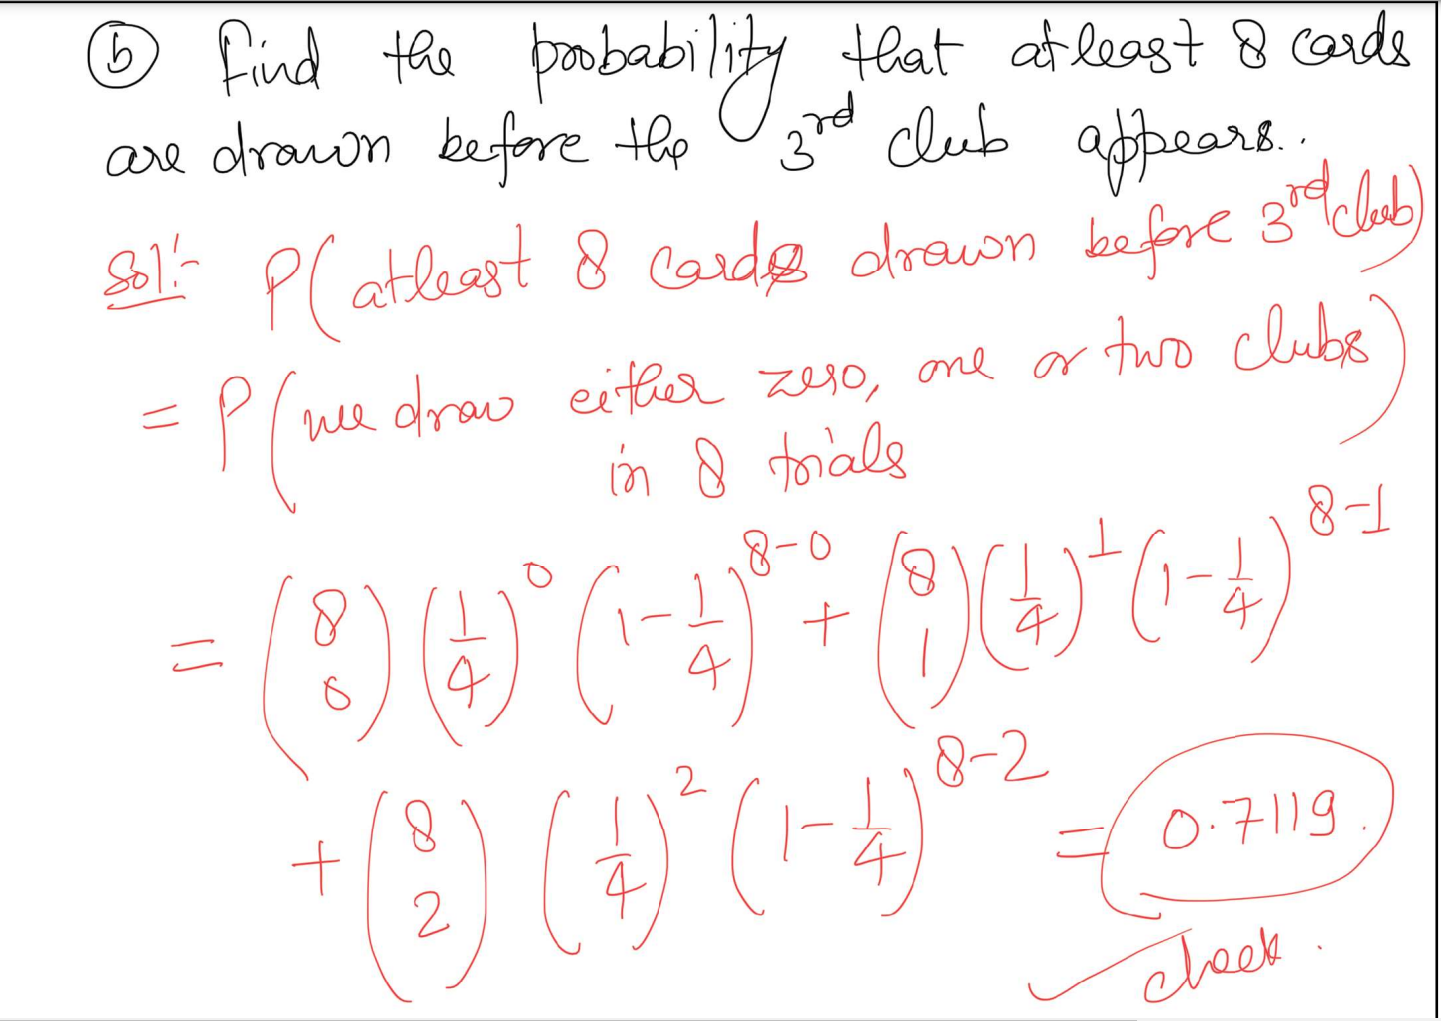 (b) Find the probability that atleast 8 cards
are drawn before the 3rd club appears..
Sol:- P(atleast 8 cards drawn before 3rd club)
= P(we draw either zero, one or two clubs)
in 8 trials
= (8 0) (1/4)^0 (1 - 1/4)^(8-0) + (8 1) (1/4)^1 (1 - 1/4)^(8-1)
+ (8 2) (1/4)^2 (1 - 1/4)^(8-2) = 0.7119.
check.